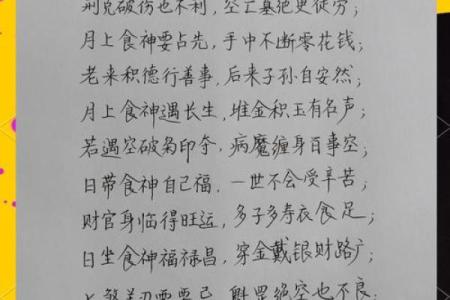 刑克破伤也不利，空亡墓绝更徒劳；
月上食神要占先，手中不断零花钱；
老来积德行善事，后来子孙自安然；
月上食神遇长生，堆金积玉有名声；
若遇空破枭印夺，病魔缠身百事空；
日带食神自己福，一世不会受辛苦；
财官身临得旺运，多子多寿衣食足；
日坐食神福禄昌，穿金戴银财路广；
魁罡绝空也不良；